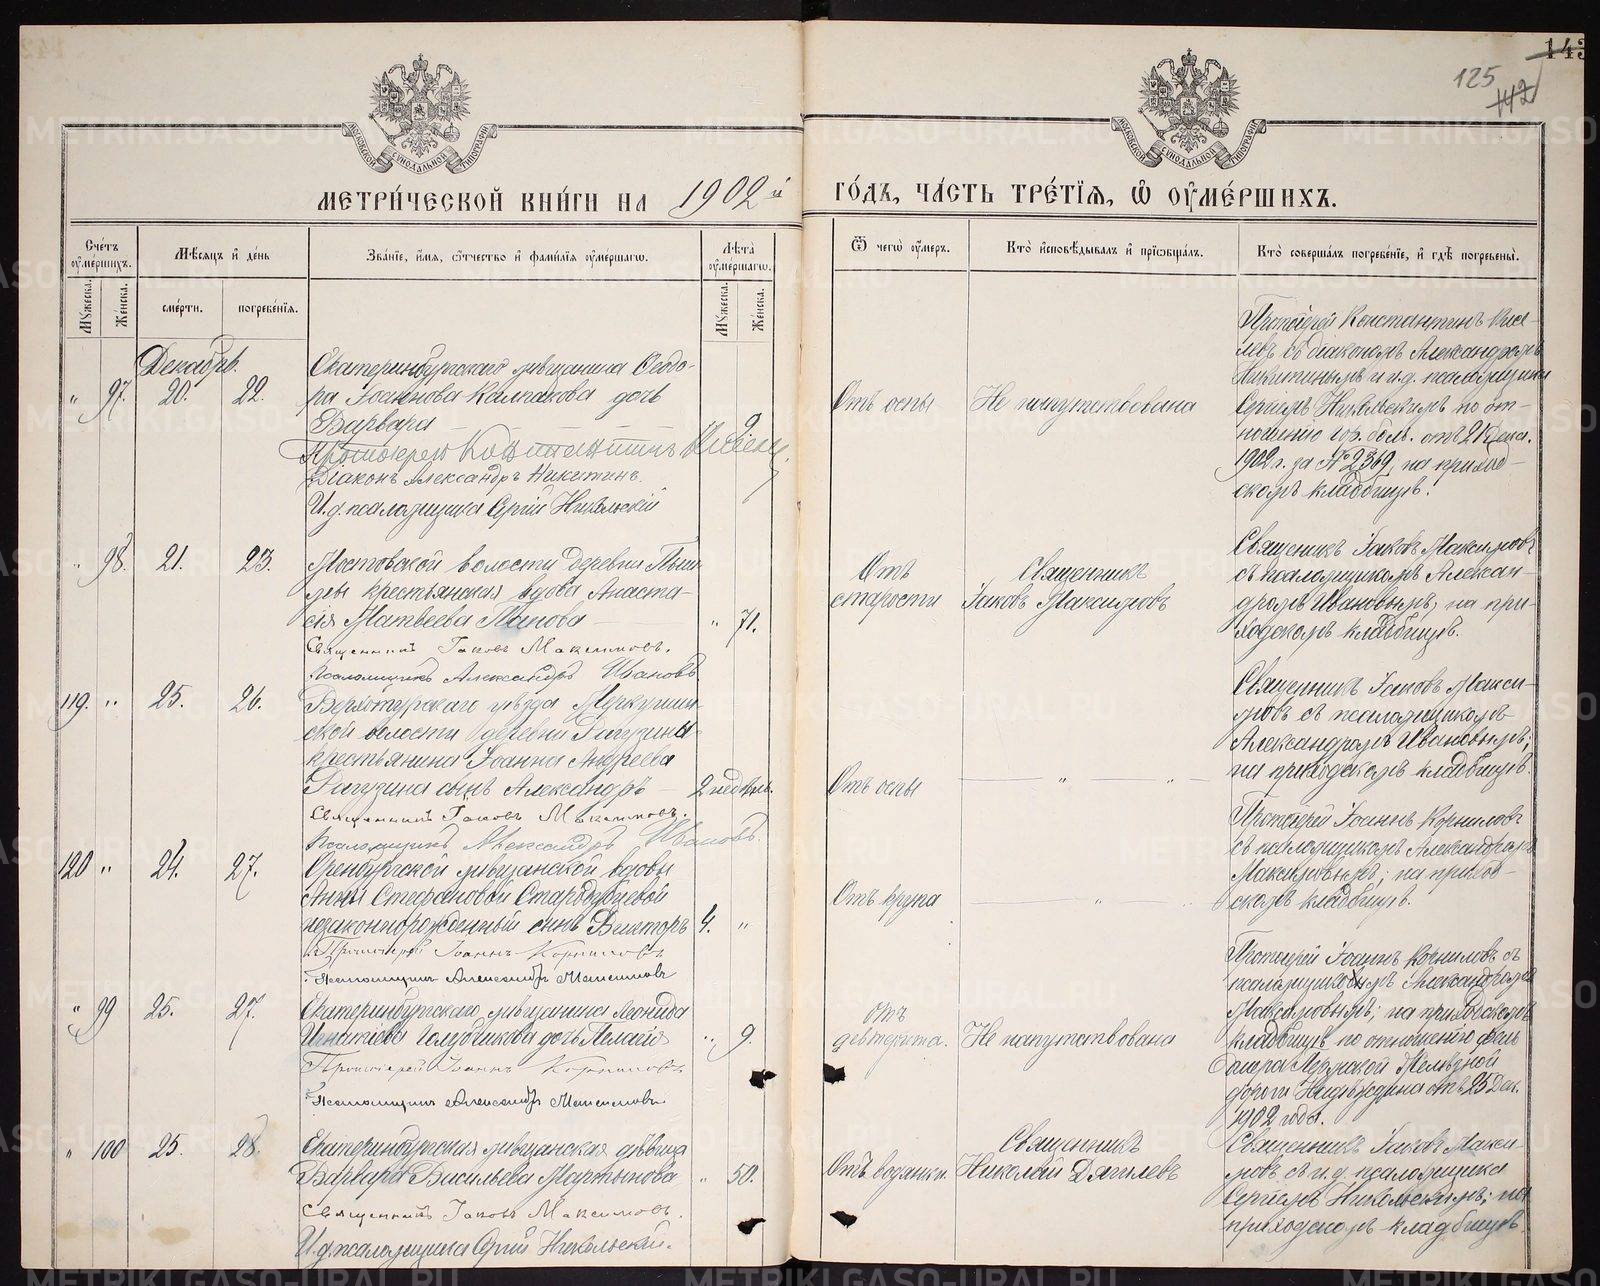 143
125
142
МЕТРИ́ЧЕСКОЙ КНИ́ГИ НА 1902й ГО́ДЪ, ЧА́СТЬ ТРЕ́ТІѦ, Ѡ҆ ОУМЕ́РШИХЪ.
МОСКОВСКОЙ СѴНОДАЛЬНОЙ ТИПОГРАФІИ
МОСКОВСКОЙ СѴНОДАЛЬНОЙ ТИПОГРАФІИ
Сче́тъ оу҆ме́ршихъ.
Мѣ́сяцъ и҆ де́нь
Зва́нїе, и҆́мя, ѻ҆́тчество и҆ фами́лїя оу҆ме́ршагѡ.
Лѣ́та оу҆ме́ршагѡ.
Ѿ чегѡ̀ оу҆́меръ.
Кто̀ и҆сповѣ́дывалъ и҆ прїѡбща́лъ.
Кто̀ соверша́лъ погребе́нїе, и҆ гдѣ̀ погребены̀.
Му́жеска.
Же́нска.
сме́рти.
погребе́нїя.
Му́жеска.
Же́нска.
Декабрь.
" 97. 20. 22.
Екатеринбургскаго мѣщанина Ѳеодо-
ра Іоаннова Калпакова дочь
Варвара
9.
Протоіерей Константинъ
Діаконъ Александръ Никитинъ.
И.д. псаломщика Сергій Никольскій
Отъ оспы
Не напутствована
Протоіерей Константинъ
съ діакономъ Александромъ
Никитинымъ и и.д. псаломщика
Сергіемъ Никольскимъ по от-
ношенію гор. больн. отъ 21 Дек.
1902 г. за № 2369, на приход-
скомъ кладбищѣ.
" 98. 21. 23.
Мостовской волости деревни
крестьянская вдова Анаста-
сія Матвеева Попова
" 71.
Священникъ Іаковъ Максимовъ.
Псаломщикъ Александръ Ивановъ.
Отъ
старости
Священникъ
Іаковъ Максимовъ
Священникъ Іаковъ Максимовъ
съ псаломщикомъ Алексан-
дромъ Ивановымъ; на при-
ходскомъ кладбищѣ.
119. " 25. 26.
Верхотурскаго уѣзда Меркушин-
ской волости деревни
крестьянина Іоанна Андреева
сынъ Александръ
2 недѣль.
Священникъ Іаковъ Максимовъ.
Псаломщикъ Александръ Ивановъ.
Отъ оспы
" "
Священникъ Іаковъ Макси-
мовъ съ псаломщикомъ
Александромъ Ивановымъ;
на приходскомъ кладбищѣ.
120 " 24. 27.
Оренбургской мѣщанской вдовы
Анны Стефановой Стародубцевой
незаконнорожденный сынъ Викторъ
4. "
Протоіерей Іоаннъ Корниловъ
Псаломщикъ Александръ Максимовъ
Отъ крупа
" "
Протоіерей Іоаннъ Корниловъ
съ псаломщикомъ Александромъ
Максимовымъ; на приход-
скомъ кладбищѣ.
" 99 25. 27.
Екатеринбургскаго мѣщанина Леонида
Игнатіева Голубчикова дочь Пелагія
" 9.
Протоіерей Іоаннъ Корниловъ
Псаломщикъ Александръ Максимовъ.
Отъ
дифтерита.
Не напутствована
Протоіерей Іоаннъ Корниловъ съ
псаломщикомъ Александромъ
Максимовымъ; на приходскомъ
кладбищѣ по отношенію фель
дшера Пермской желѣзной
дороги отъ 25 Дек.
1902 года.
" 100 25. 28.
Екатеринбургская мѣщанская дѣвица
Варвара Васильева Мартынова
" 50.
Священникъ Іаковъ Максимовъ.
И.д. псаломщика Сергій Никольскій.
Отъ водянки.
Священникъ
Николай Дягилевъ
Священникъ Іаковъ Макси-
мовъ съ и.д. псаломщика
Сергіемъ Никольскимъ; на
приходскомъ кладбищѣ.
METRIKI.GASO-URAL.RU